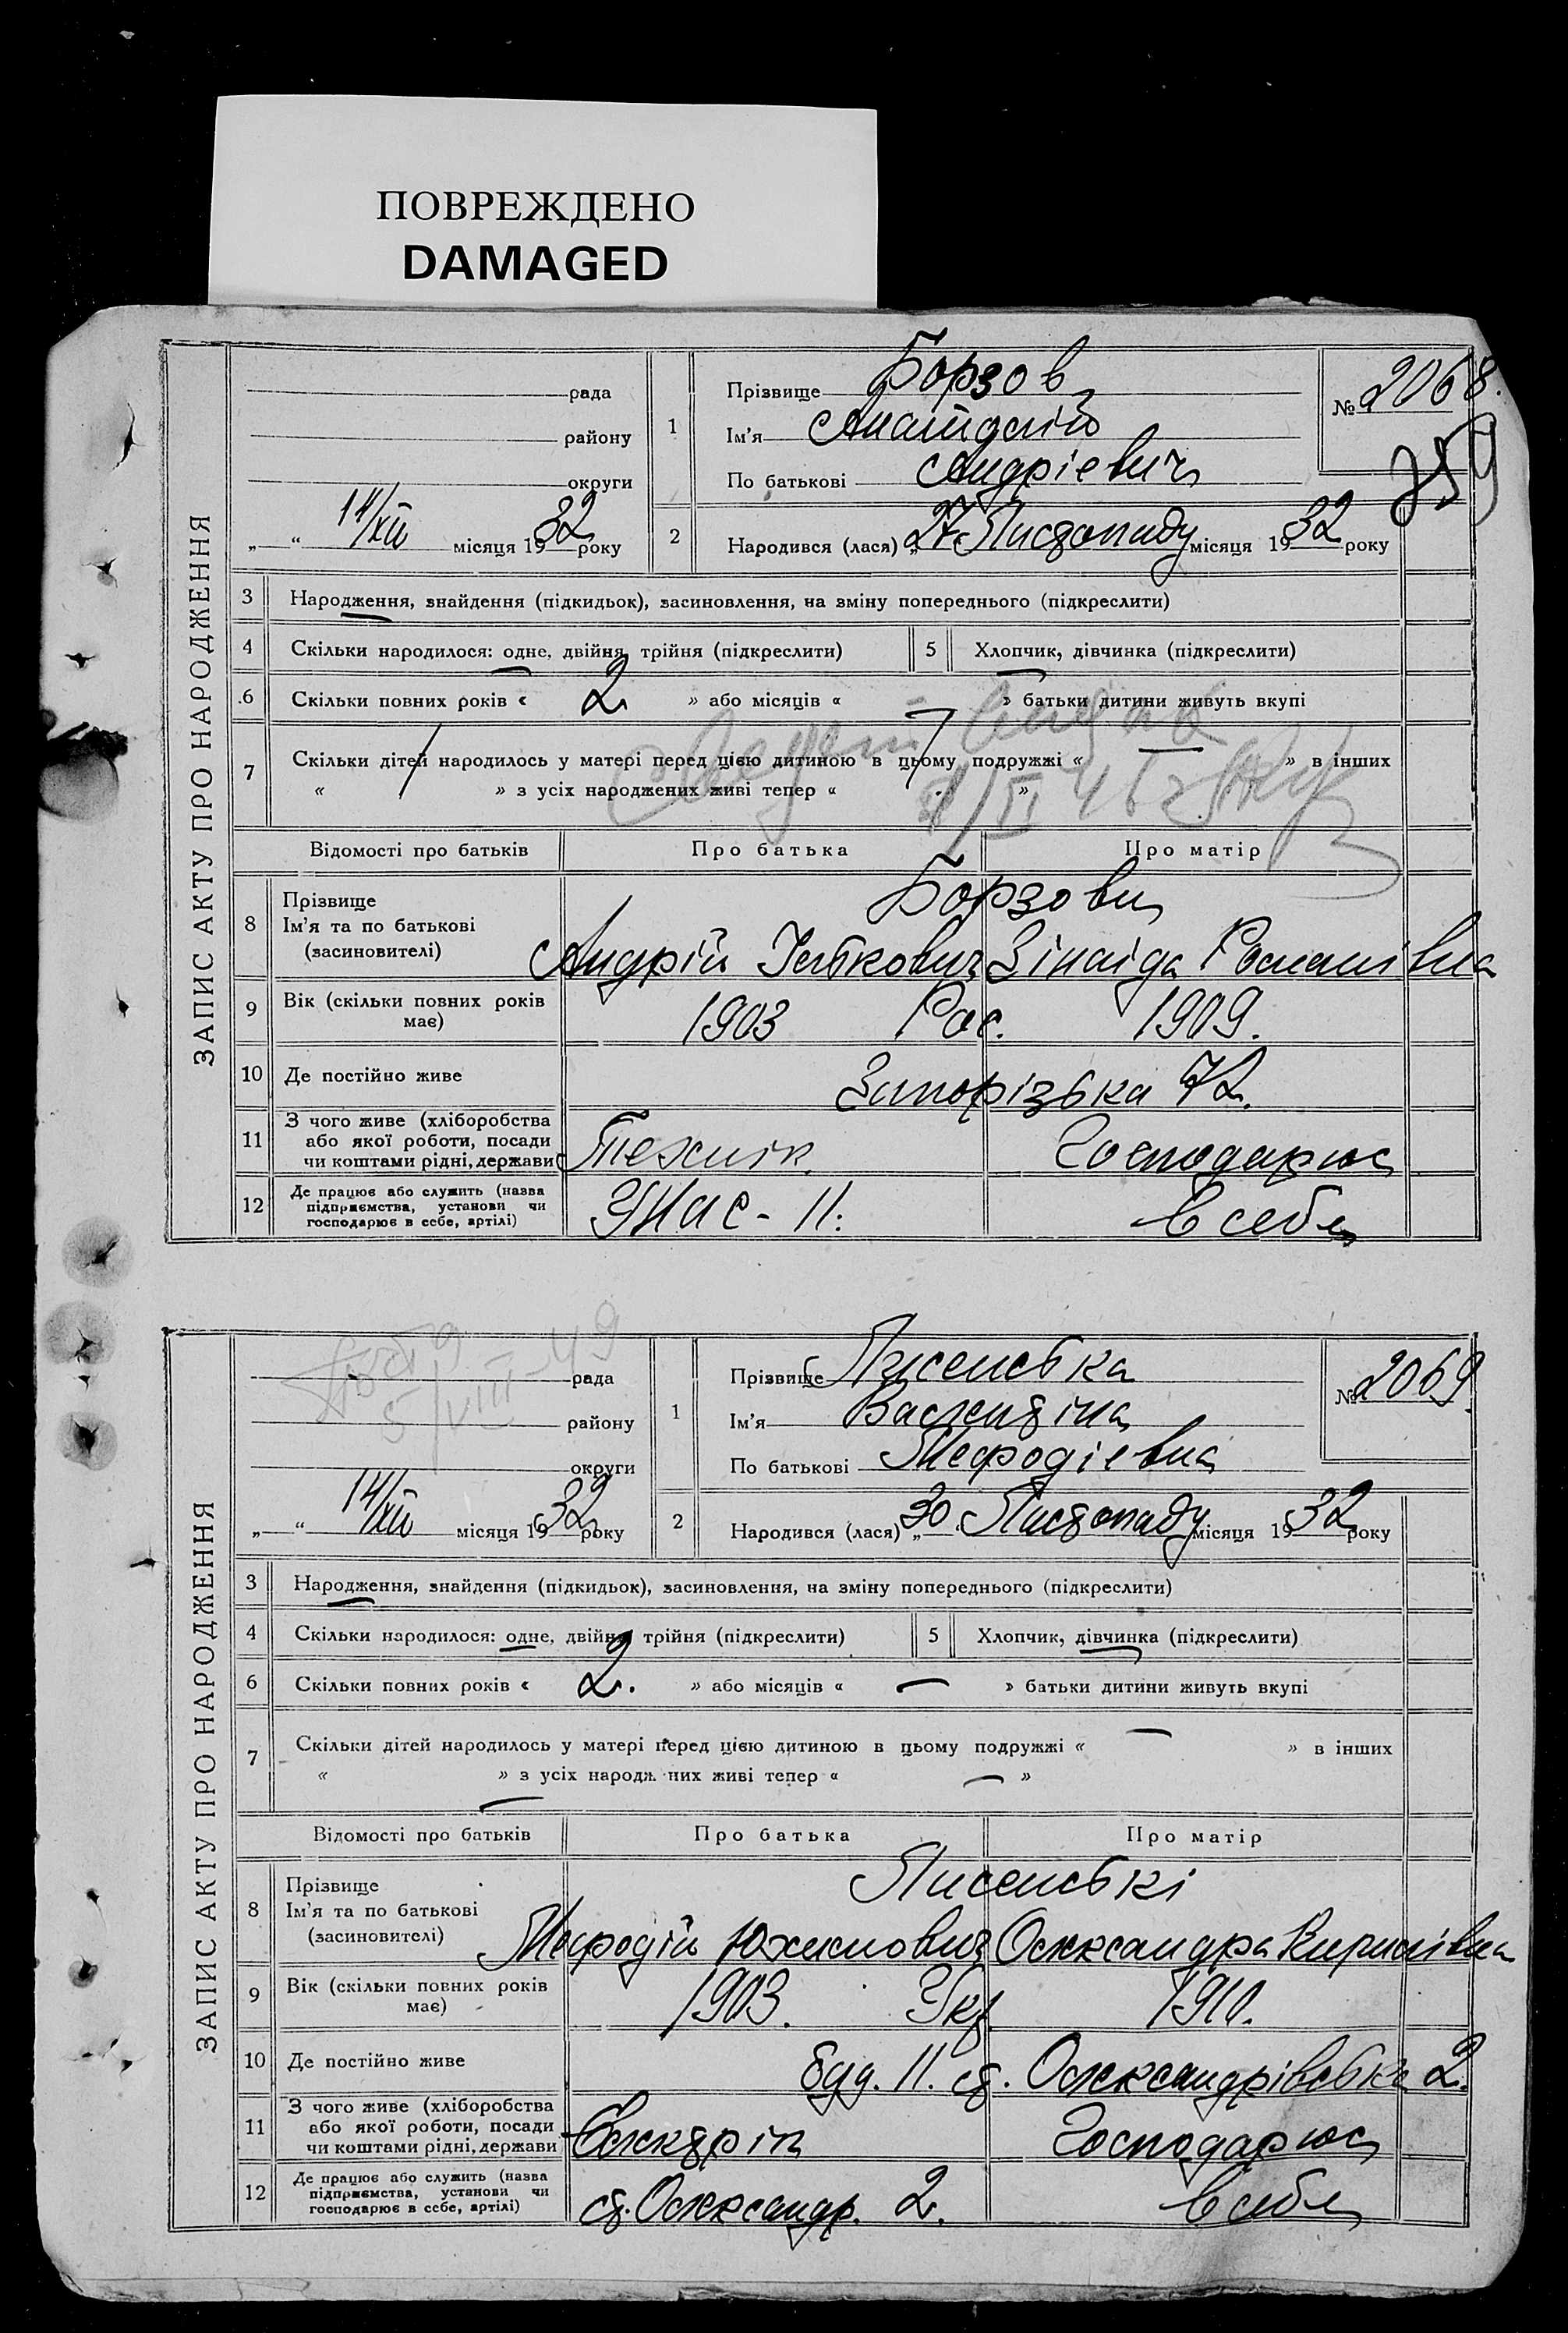 ПОВРЕЖДЕНО
DAMAGED
ЗАПИС АКТУ ПРО НАРОДЖЕННЯ
рада
району
округи
„ “ 14/XII місяця 1932 року
1
Прізвище Борзов
Ім'я Анатолій
По батькові Андрієвич
№ 2068.
259
2 Народився (лася) „27“ Листопаду місяця 1932 року
3 Народження, знайдення (підкидьок), засиновлення, на зміну попереднього (підкреслити)
4 Скільки народилося: одне, двійня, трійня (підкреслити) 5 Хлопчик, дівчинка (підкреслити)
6 Скільки повних років « 2 » або місяців « — » батьки дитини живуть вкупі
7 Скільки дітей народилось у матері перед цією дитиною в цьому подружжі « — » в інших
« / » з усіх народжених живі тепер « »
Відомості про батьків Про батька Про матір
8 Прізвище
Ім'я та по батькові
(засиновителі)
Борзови
Андрій Зінаїда Романівна
9 Вік (скільки повних років має) 1903 Рос. 1909.
10 Де постійно живе Запорізька 72.
11 З чого живе (хліборобства
або якої роботи, посади
чи коштами рідні, держави
Технік Господарює
12 Де працює або служить (назва
підприємства, установи чи
господарює в себе, артілі)
в себе
ЗАПИС АКТУ ПРО НАРОДЖЕННЯ
5/VIII-49
рада
району
округи
„ “ 14/XII місяця 1932 року
1
Прізвище Лисенська
Ім'я Валентіна
По батькові Мефодіевна
№ 2069.
2 Народився (лася) „30“ Листопаду місяця 1932 року
3 Народження, знайдення (підкидьок), засиновлення, на зміну попереднього (підкреслити)
4 Скільки народилося: одне, двійня, трійня (підкреслити) 5 Хлопчик, дівчинка (підкреслити)
6 Скільки повних років « 2. » або місяців « — » батьки дитини живуть вкупі
7 Скільки дітей народилось у матері перед цією дитиною в цьому подружжі « — » в інших
« — » з усіх народж них живі тепер « — »
Відомості про батьків Про батька Про матір
8 Прізвище
Ім'я та по батькові
(засиновителі)
Лисенські
Мефодій Юхимович Олександра Кирилівна
9 Вік (скільки повних років має) 1903. Укр. 1910.
10 Де постійно живе буд. 11. ст. Олександрівська 2.
11 З чого живе (хліборобства
або якої роботи, посади
чи коштами рідні, держави
Господарює
12 Де працює або служить (назва
підприємства, установи чи
господарює в себе, артілі)
ст. Олександр. 2. в себе